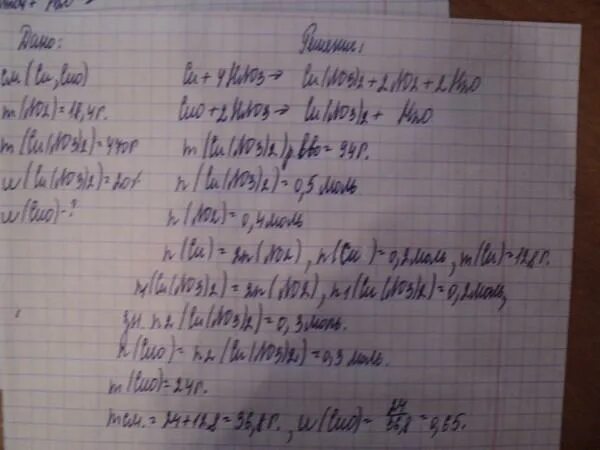 Дано:
Решение:
см (Cu, CuO)
Cu + 4HNO3 → Cu(NO3)2 + 2NO2 + 2H2O
m(NO2) = 18,4г.
CuO + 2HNO3 → Cu(NO3)2 + H2O
m(Cu(NO3)2) = 470г
m(Cu(NO3)2) р.вво = 94г.
w(Cu(NO3)2) = 20%
n(Cu(NO3)2) = 0,5 моль.
w(CuO) - ?
n(NO2) = 0,4 моль
n(Cu) = 2n(NO2), n(Cu) = 0,2 моль, m(Cu) = 12,8г.
n1(Cu(NO3)2) = 2n(NO2), n1(Cu(NO3)2) = 0,2 моль,
зн. n2(Cu(NO3)2) = 0,3 моль.
n(CuO) = n2(Cu(NO3)2) = 0,3 моль.
m(CuO) = 24г.
mсм. = 24 + 12,8 = 36,8г., w(CuO) = 24/36,8 = 0,65.